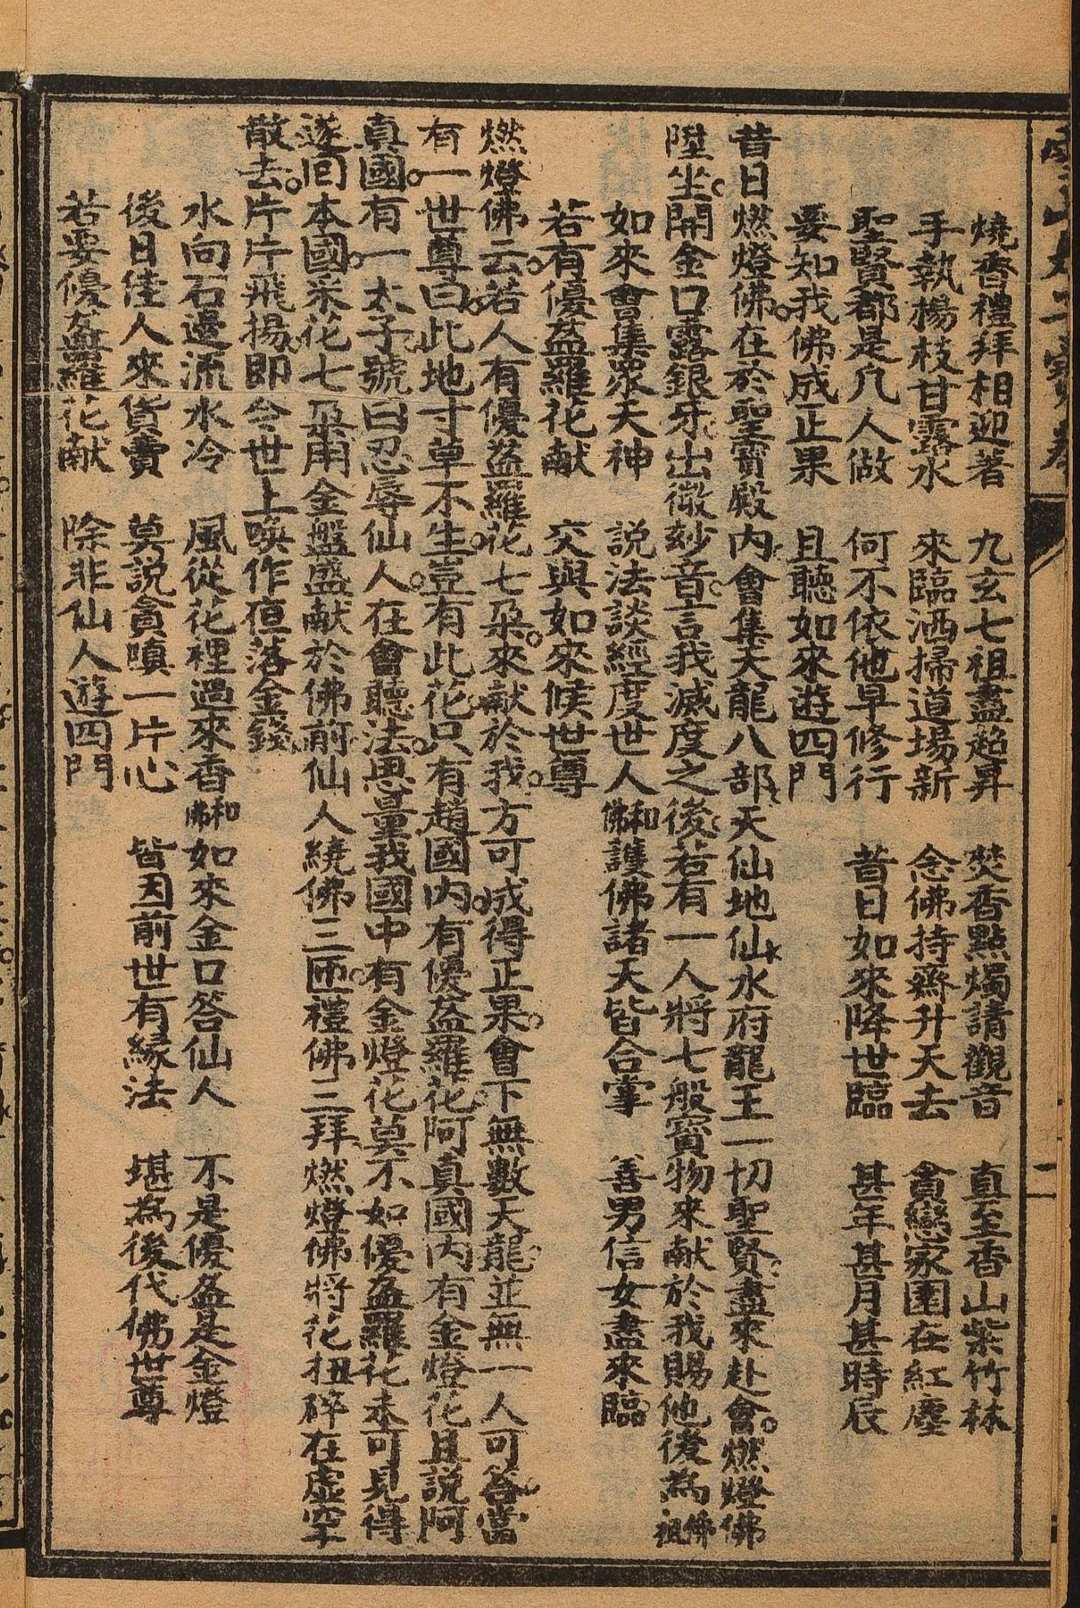 燒香禮拜相迎著　九玄七祖盡超昇　焚香點燭請觀音　直至香山紫竹林
手執楊枝甘露水　來臨洒掃道場新　念佛持齋升天去　貪戀家園在紅塵
聖賢都是凡人做　何不依他早修行　昔日如來降世臨　甚年甚月甚時辰
要知我佛成正果　且聽如來遊四門
昔日燃燈佛。在於聖寳殿內會集天龍八部天仙地仙水府龍王一切聖賢盡來赴會。燃燈佛
陞坐。開金口露銀牙出微玅音。言我滅度之後若有一人將七般寳物來献於我賜他後為佛祖
如來會集眾天神　說法談經度世人和佛護佛諸天皆合掌　善男信女盡來臨
若有優盋羅花献　交與如來候世尊
燃燈佛云。若人有優盋羅花七朶。來献於我。方可成得正果。會下無數天龍並無一人可答。當
有一世尊曰。此地寸草不生豈有此花。只有趙國內有優盋羅花阿真國內有金燈花且說阿
真國。有一太子號曰忍辱仙人。在會聽法。思量我國中有金燈花莫不如優盋羅花未可見得
遂回本國。采花七朶用金盤盛献於佛前仙人繞佛三匝。禮佛三拜。燃燈佛將花扭碎在虛空
散去。片片飛揚。即今世上喚作𠖥落金錢
水向石邊流水冷　風從花裡過來香和佛如來金口答仙人　不是優盋是金燈
後日佳人來貨賣　莫說貪嗔一片心　皆因前世有緣法　堪為後代佛世尊
若要優盋羅花献　除非仙人遊四門
二